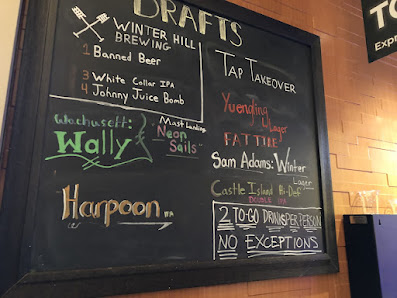 DRAFTS
WINTER HILL
BREWING
1 Banned Beer
3 White Collar IPA
4 Johnny Juice Bomb
Wachusett:
Wally
Mast Landing
"Neon
Sails"
Harpoon IPA
TAP TAKEOVER
Yuengling
Lager
FAT TIRE
Sam Adams: Winter
Lager
Castle Island Hi-Def
DOUBLE IPA
2 TO-GO DRINKS PER PERSON
NO EXCEPTIONS
TO
Expr